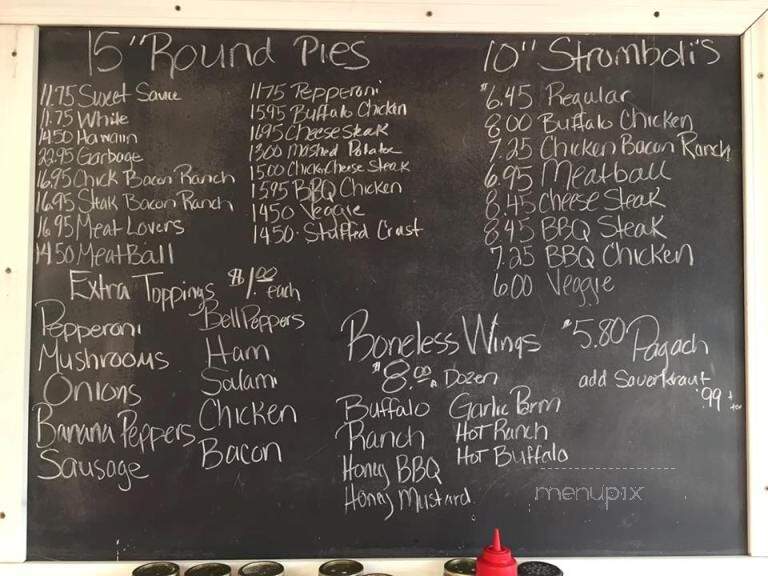 15" Round Pies
11.75 Sweet Sauce
11.75 White
14.50 Hawain
22.95 Garbage
16.95 Chick Bacon Ranch
16.95 Steak Bacon Ranch
16.95 Meat Lovers
14.50 MeatBall
11.75 Pepperoni
15.95 Buffalo Chicken
16.95 Cheese Steak
13.00 Mashed Potatoe
15.00 Chick Cheese Steak
15.95 BBQ Chicken
14.50 Veggie
14.50 Stuffed Crust
10" Stromboli's
$6.45 Regular
8.00 Buffalo Chicken
7.25 Chicken Bacon Ranch
6.95 Meatball
8.45 Cheese Steak
8.45 BBQ Steak
7.25 BBQ Chicken
6.00 Veggie
Extra Toppings $1.00 each
Pepperoni
Mushrooms
Onions
Banana Peppers
Sausage
Bell Peppers
Ham
Salami
Chicken
Bacon
Boneless Wings
$8.00 a Dozen
Buffalo
Ranch
Honey BBQ
Honey Mustard
Garlic Parm
Hot Ranch
Hot Buffalo
$5.80 Pagach
add Sauerkraut
.99
menupix